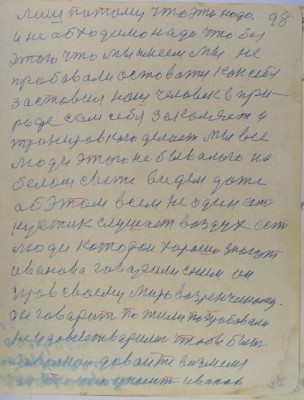 лиш потому что это надо 98
и не обходимо надо что без
этого что мы имеем мы не
пробавали остовати как себя
заставил наш человек в при-
роде сам себя закаляет и
тренировкой делает мы все
люди этого небывалого на
белом свете видем даже
об этом всем не один ест
кустик слушает воздух ест
люди которои хорошо знают
иванова говорили сним он
прав своему мировозренчению.
он говарит по жили по требовали
не удовлетварили чтобы быт
давайте возмем
иванов